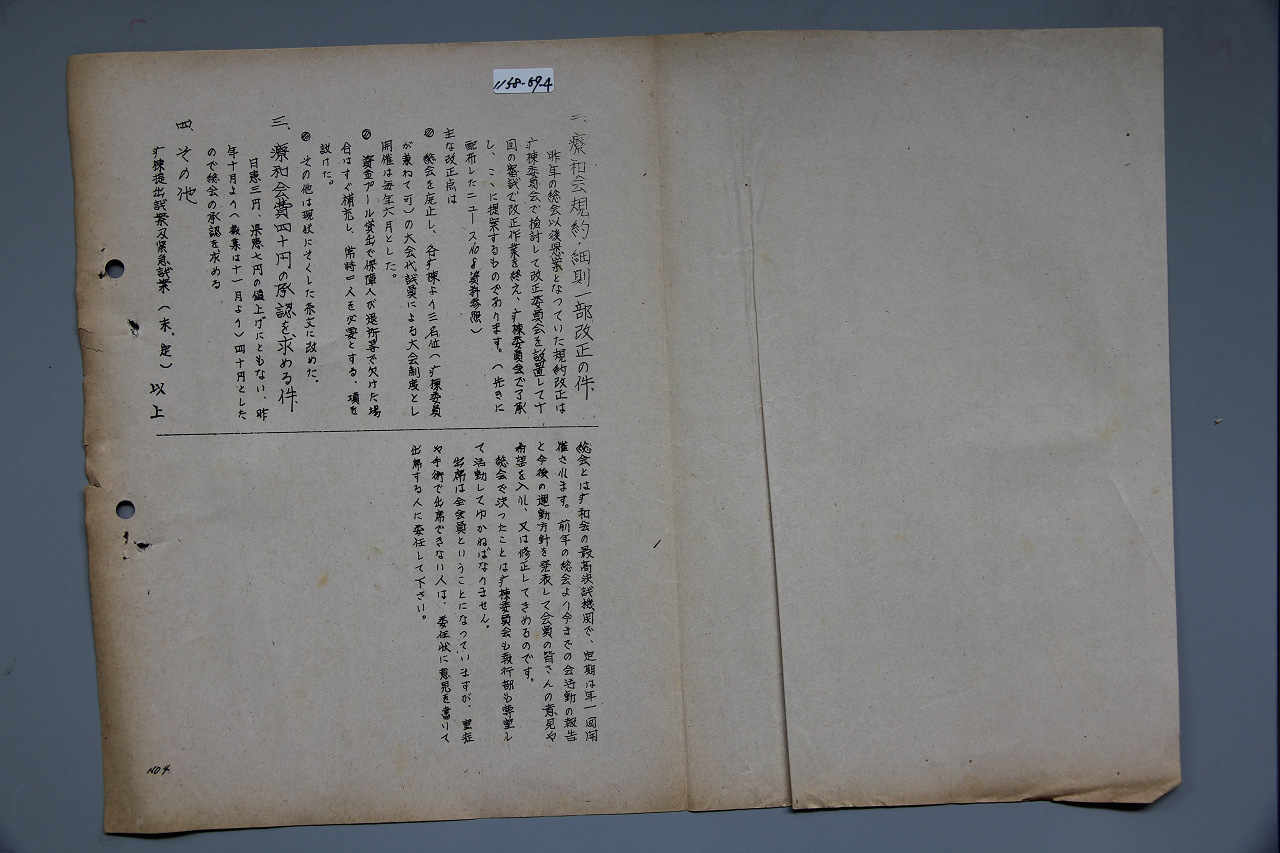 1158-59-4
二、療和会規約・細則一部改正の件
昨年の総会以後懸案となっていた規約改正は
疒棟委員会で検討して改正委員会を設置して十
回の審議で改正作業を終え、疒棟委員会で了承
し、ここに提案するものであります。(先きに
配布したニュースNo8資料参照)
主な改正点は
◎ 総会を廃止し、各疒棟より三名位(疒棟委員
が兼ねて可)の大会代議員による大会制度とし
開催は毎年六月とした。
◎ 資金プール貸出で保障人が退所等で欠けた場
合はすぐ補充し、常時二人を必要とする、項を
設けた。
◎ その他は現状にそくした条文に改めた。
三、療和会費四十円の承認を求める件
日患三円、県患七円の値上げにともない、昨
年十月より(徴集は十一月より)四十円とした
ので総会の承認を求める
四、その他
疒棟提出議案及緊急議案(未、定) 以上
総会とは疒和会の最高決議機関で、定期は年一回開
催されます。前年の総会より今までの会活動の報告
と今後の運動方針を発表して会員の皆さんの意見や
希望を入れ、又は修正してきめるのです。
総会で決ったことは疒棟委員会も執行部も尊重し
て活動してゆかねばなりません。
出席は全会員ということになっていますが、重症
や手術で出席できない人は、委任状に意見を書いて
出席する人に委任して下さい。
NO4